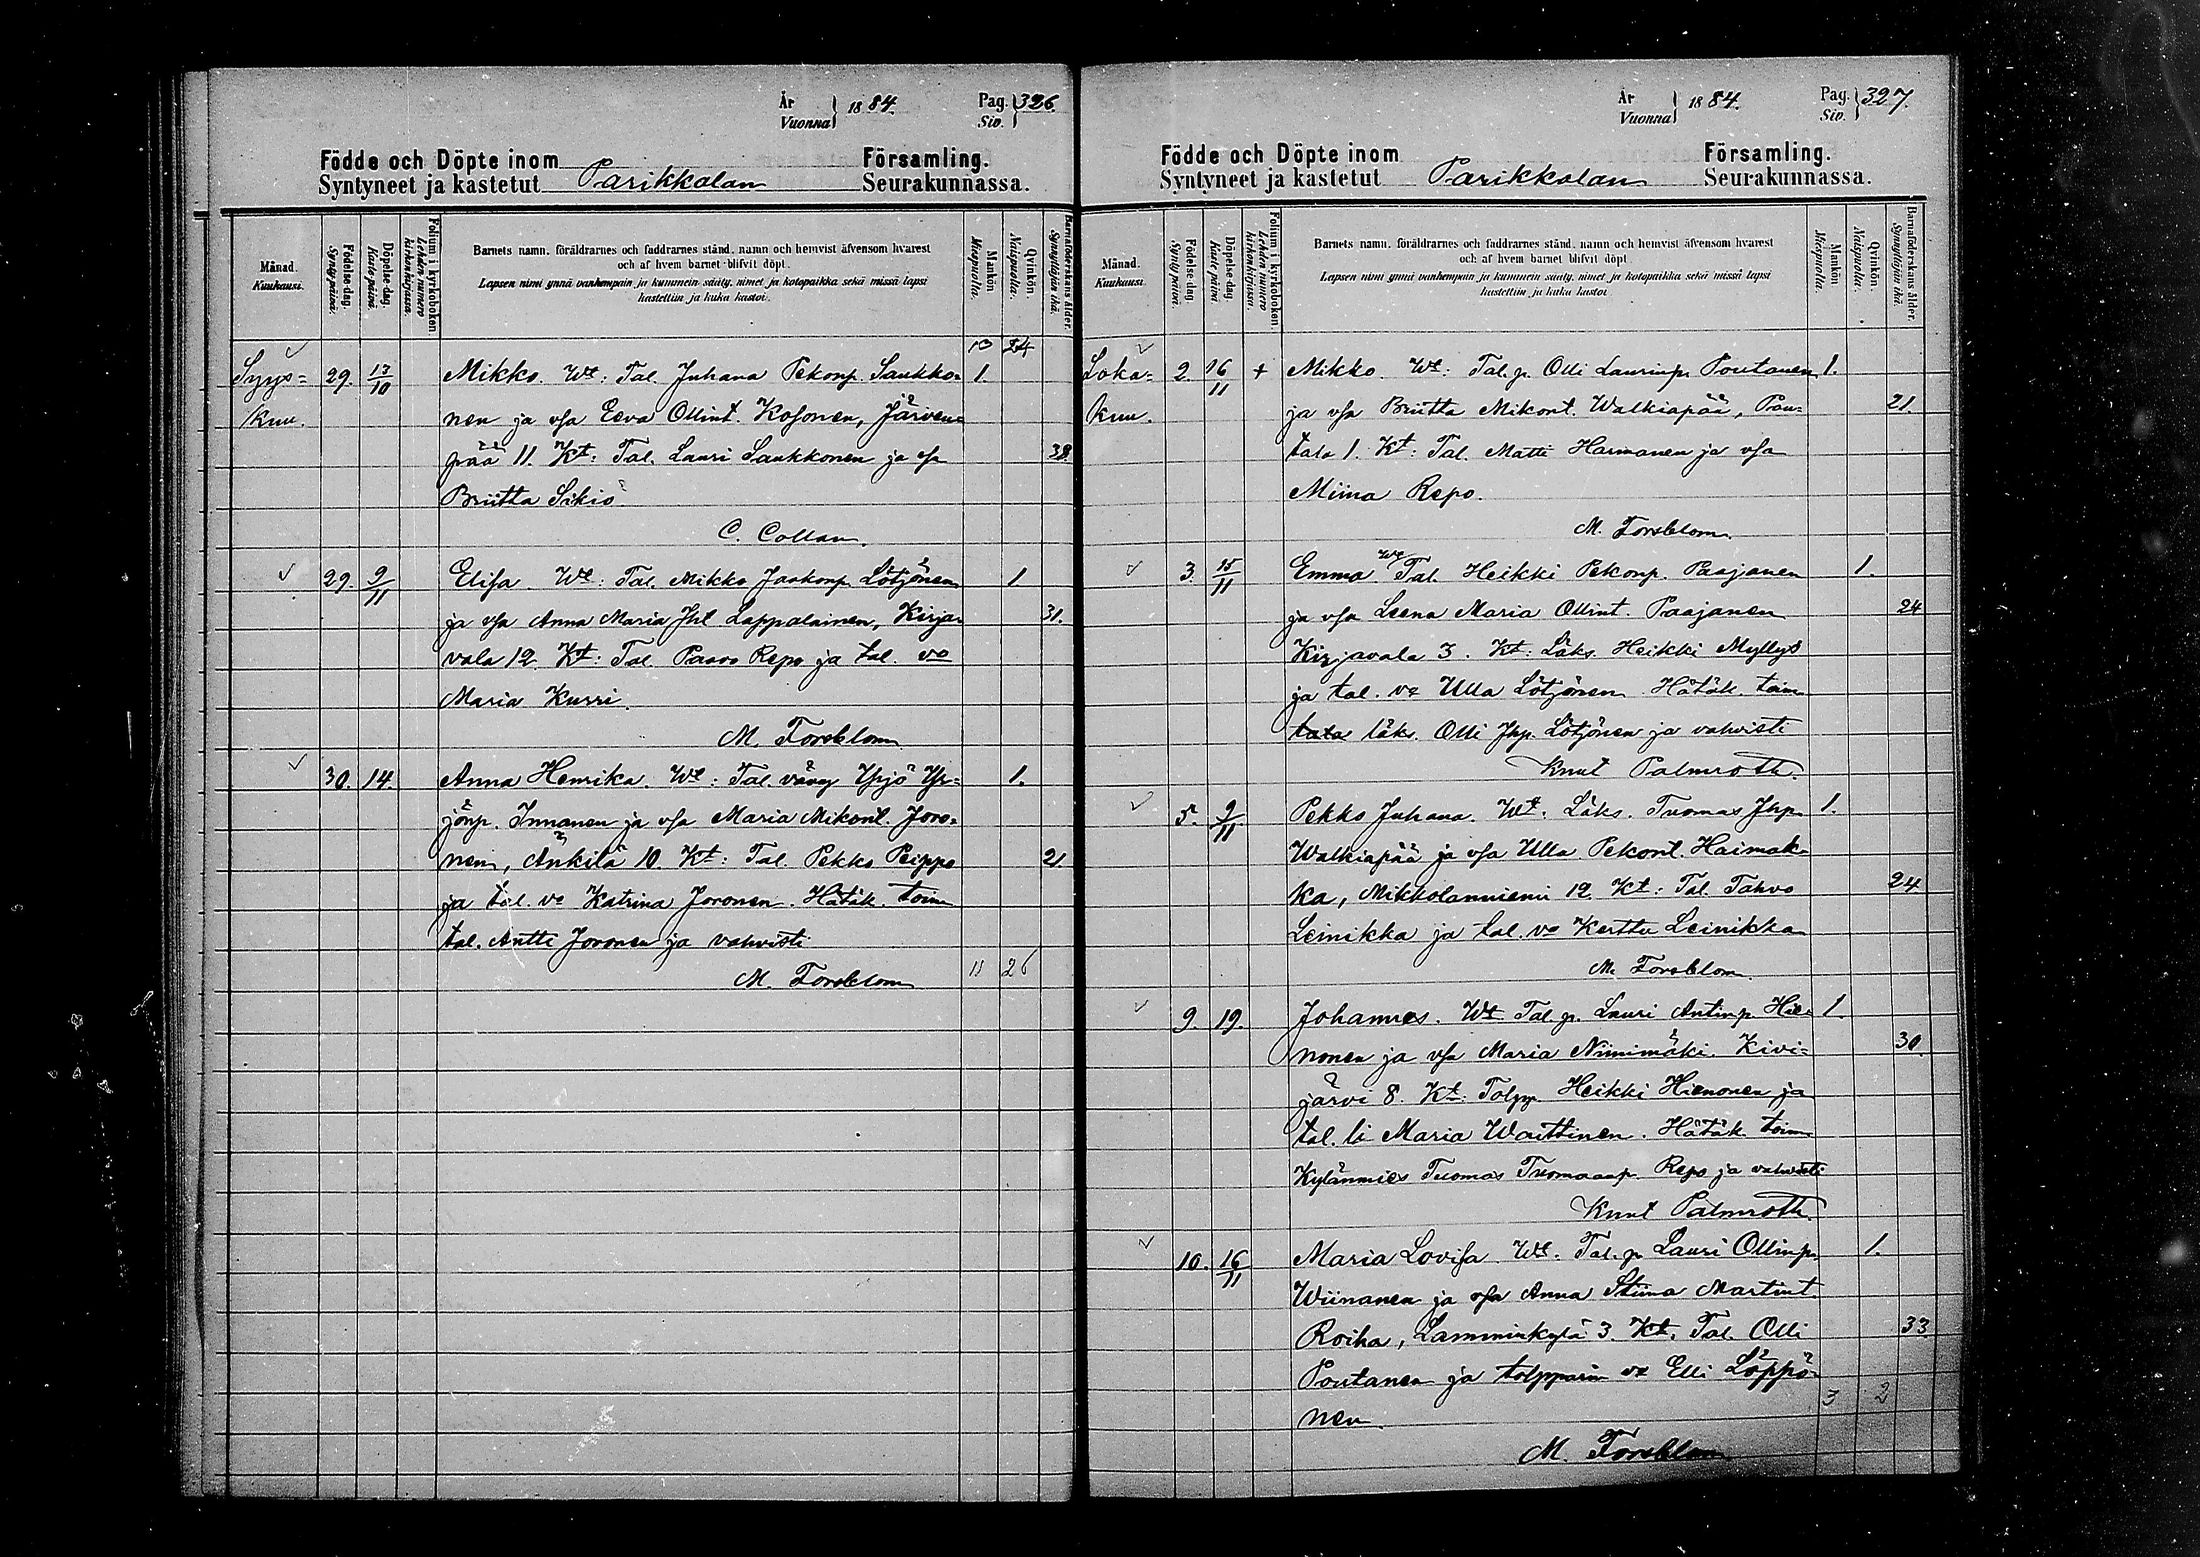 År Vuonna } 1884. Pag. Siv. } 326.
Födde och Döpte inom Församling.
Syntyneet ja kastetut Parikkalan Seurakunnassa.
Månad. Kuukausi.
Födelse-dag. Syntypäivä.
Döpelse-dag. Kastepäivä.
Folium i kyrkoboken. Lehden numero kirkonkirjassa.
Barnets namn, föräldrarnes och faddrarnes stånd, namn och hemvist äfvensom hvarest
och af hvem barnet blifvit döpt.
Lapsen nimi ynnä vanhempain ja kummein sääty, nimet ja kotopaikka sekä missä lapsi
kastettiin ja kuka kastoi.
Mankön Miespuolia.
Qvinkön. Naispuolia.
Barnaföderskans ålder. Synnyttäjän ikä.
10 24
Syys= 29. 13/10 Mikko. Wt: Tal. Juhana Pekonp. Saukko= 1.
kuu. nen ja vsa Eeva Ollint. Kosonen, Järven=
pää 11. Kt: Tal. Lauri Saukkonen ja vsa 38.
Briitta Sikiö.
C. Collan.
29. 9/11 Elisa. Wt: Tal. Mikko Jaakonp. Lötjönen 1
ja vsa Anna Maria Jht Lappalainen, Kirja= 31.
vala 12. Kt: Tal. Paavo Repo ja tal. vo
Maria Kurri.
M. Forsblom
30. 14. Anna Henrika. Wt: Tal. vävy Yrjö Yr= 1.
jönp. Innanen ja vsa Maria Mikont. Joro=
nen, Änkilä 10. Kt: Tal. Pekko Peippo 21.
ja tal. vo Katrina Joronen. Hätäk. toim
tal. Antti Joronen ja vahvisti
M. Forsblom 11 26
År Vuonna } 1884. Pag. Siv. } 327.
Födde och Döpte inom Församling.
Syntyneet ja kastetut Parikkalan Seurakunnassa.
Månad. Kuukausi.
Födelse-dag. Syntypäivä.
Döpelse-dag. Kastepäivä.
Folium i kyrkoboken. Lehden numero kirkonkirjassa.
Barnets namn, föräldrarnes och faddrarnes stånd, namn och hemvist äfvensom hvarest
och af hvem barnet blifvit döpt
Lapsen nimi ynnä vanhempain ja kummein sääty, nimet ja kotopaikka sekä missä lapsi
kastettiin ja kuka kastoi
Mankön Miespuolia.
Qvinkön. Naispuolia.
Barnaföderskans ålder. Synnyttäjän ikä.
Loka= 2. 16/11 + Mikko. Wt: Tal. p. Olli Laurinp. Poutanen 1.
kuu. ja vsa Briitta Mikont. Walkiapää, Pou= 21.
tala 1. Kt: Tal. Matti Harmanen ja vsa
Miina Repo.
M. Forsblom.
3. 15/11 Emma Wt Tal. Heikki Pekonp. Paajanen 1.
ja vsa Leena Maria Ollint. Paajanen 24
Kirjavala 3. Kt: Läks. Heikki Myllys
ja tal. vo Ulla Lötjönen. Hätäk. toim
tata läks. Olli Jhp. Lötjönen ja vahvisti
Knut Palmroth.
5. 9/11 Pekko Juhana. Wt: Läks. Tuomas Jhp. 1.
Walkiapää ja vsa Ulla Pekont. Haimak=
ka, Mikkolanniemi 12. Kt: Tal. Tahvo 24
Leinikka ja tal. vo Kerttu Leinikka
M. Forsblom
9. 19. Johannes. Wt. Tal. p. Lauri Antinp. Hie= 1.
nonen ja vsa Maria Niinimäki. Kivi= 30.
järvi 8. Kt: Tolpp. Heikki Hienonen ja
tal. li Maria Waittinen. Hätäk. toim
Kylänmies Tuomas Tuomaanp. Repo ja vahvisti
Knut Palmroth.
10. 16/11 Maria Lovisa. Wt: Tal. p. Lauri Ollinp. 1.
Wiinanen ja vsa Anna Stiina Martint
Roiha, Lamminkylä 3. Kt. Tal. Olli 33
Poutanen ja tolpparin vo Elli Löppö=
nen. 3 2
M. Forsblom